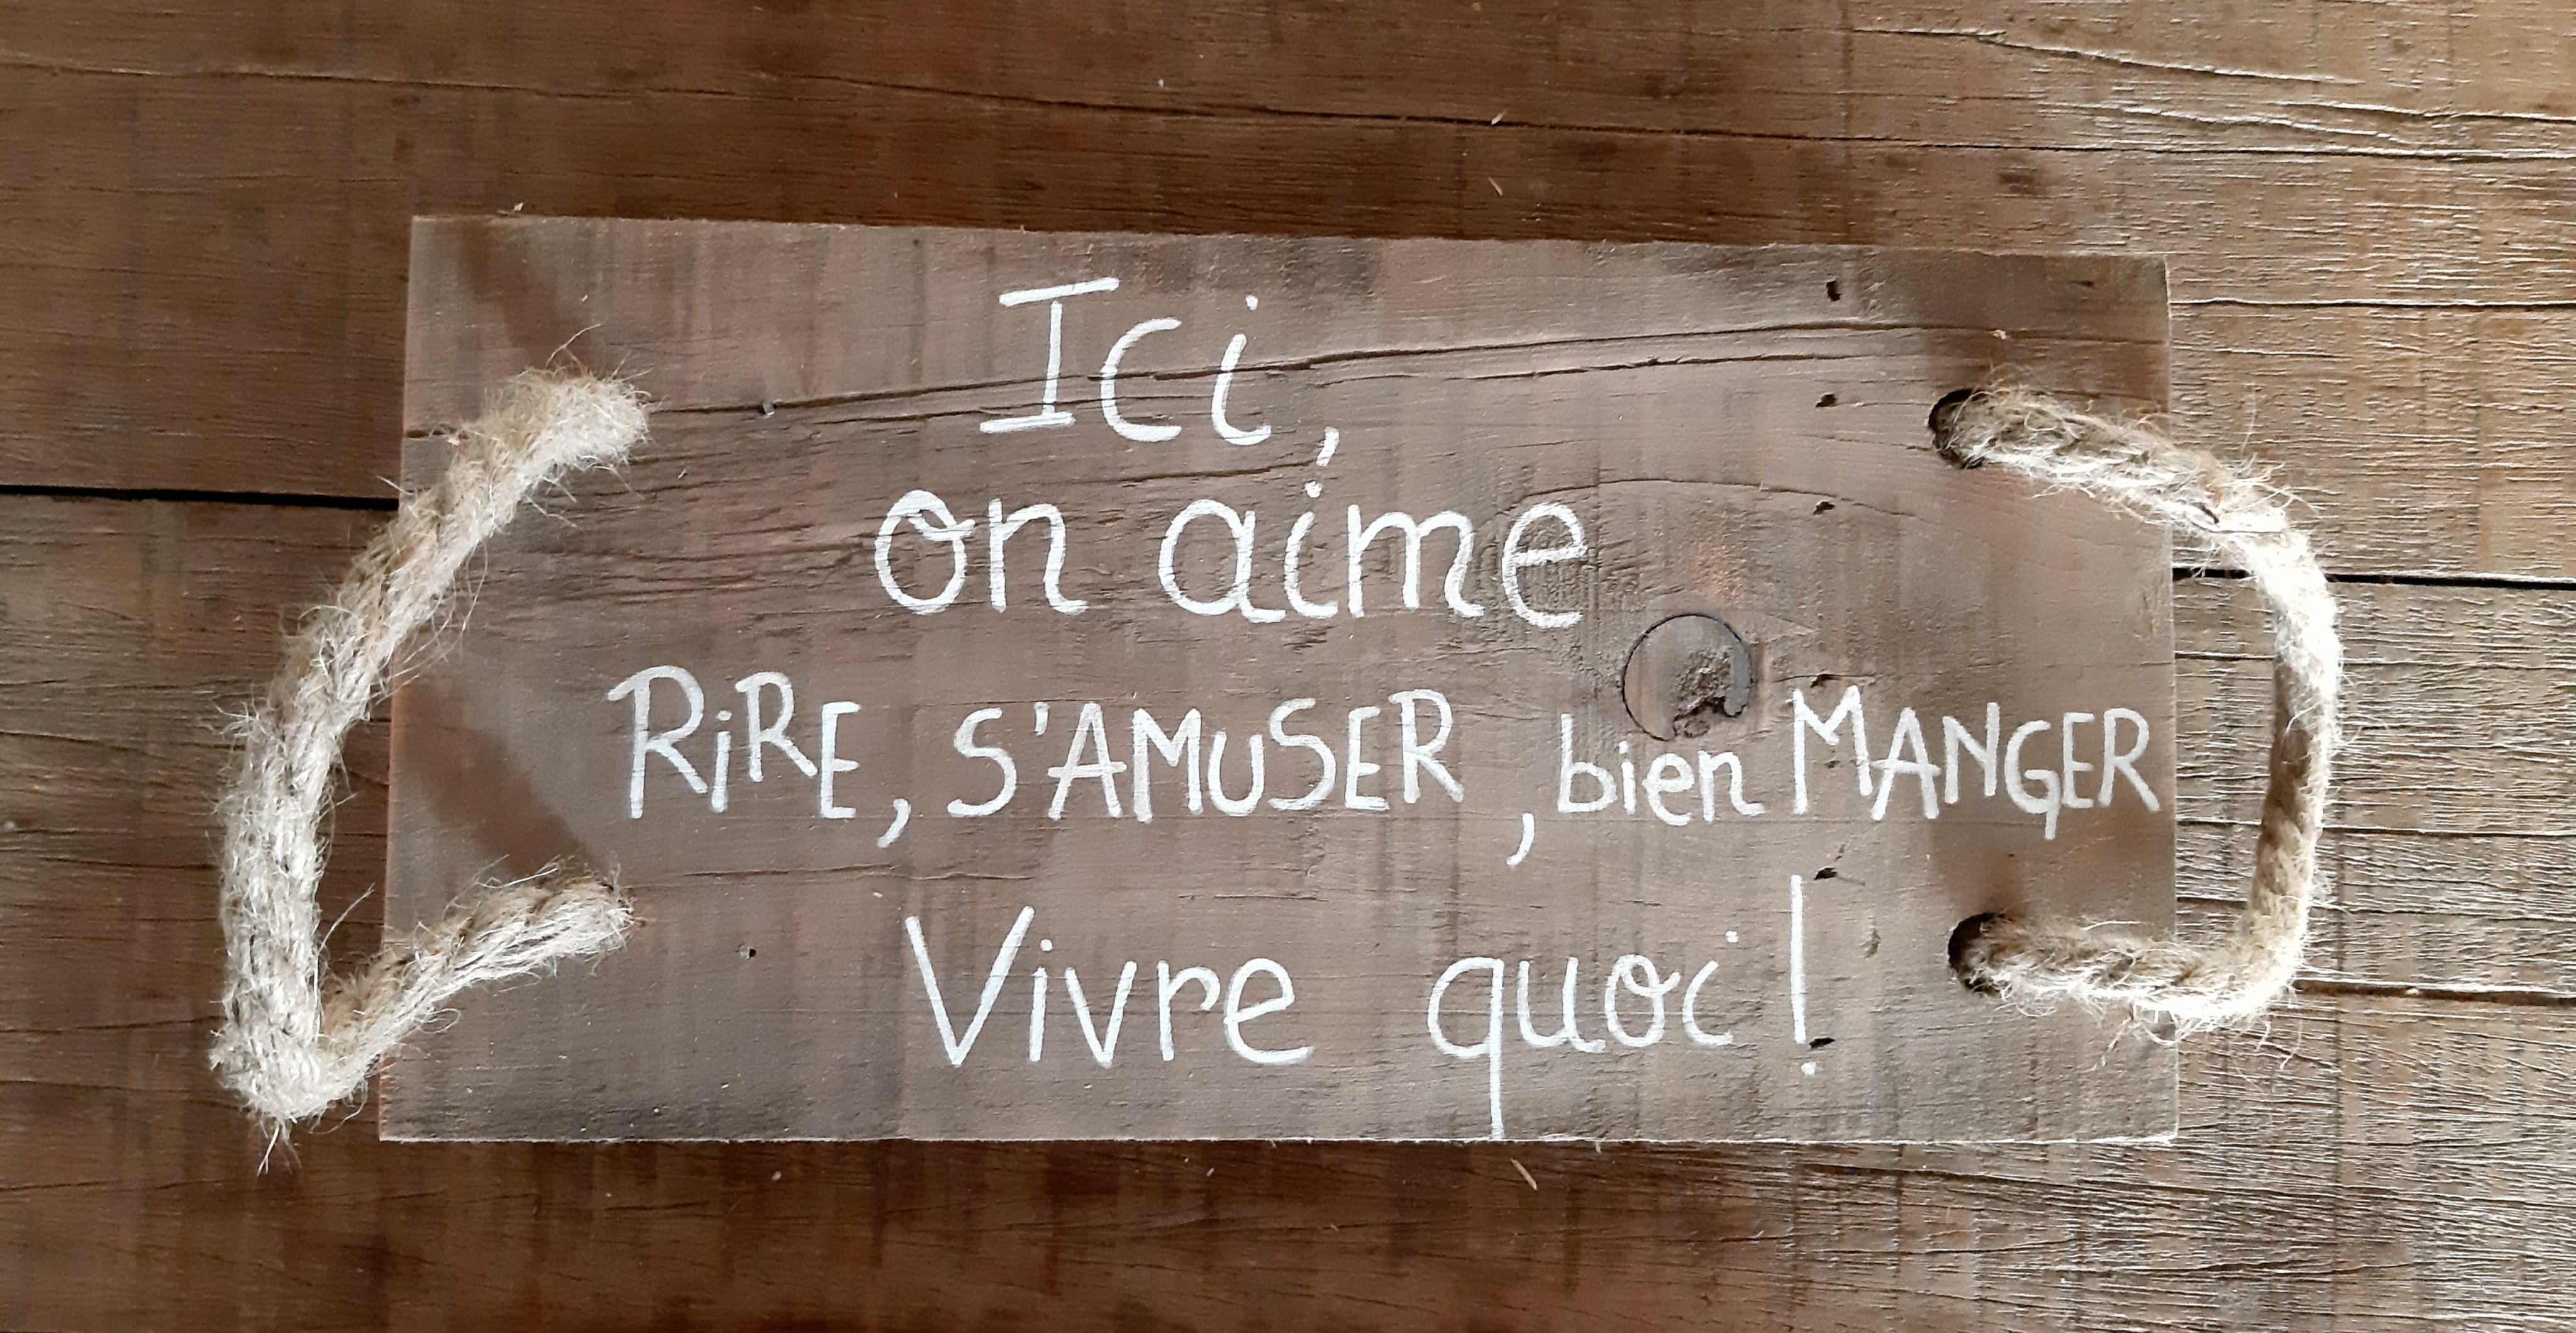 Ici,
on aime
RiRE, S'AMUSER, bien MANGER
Vivre quoi!